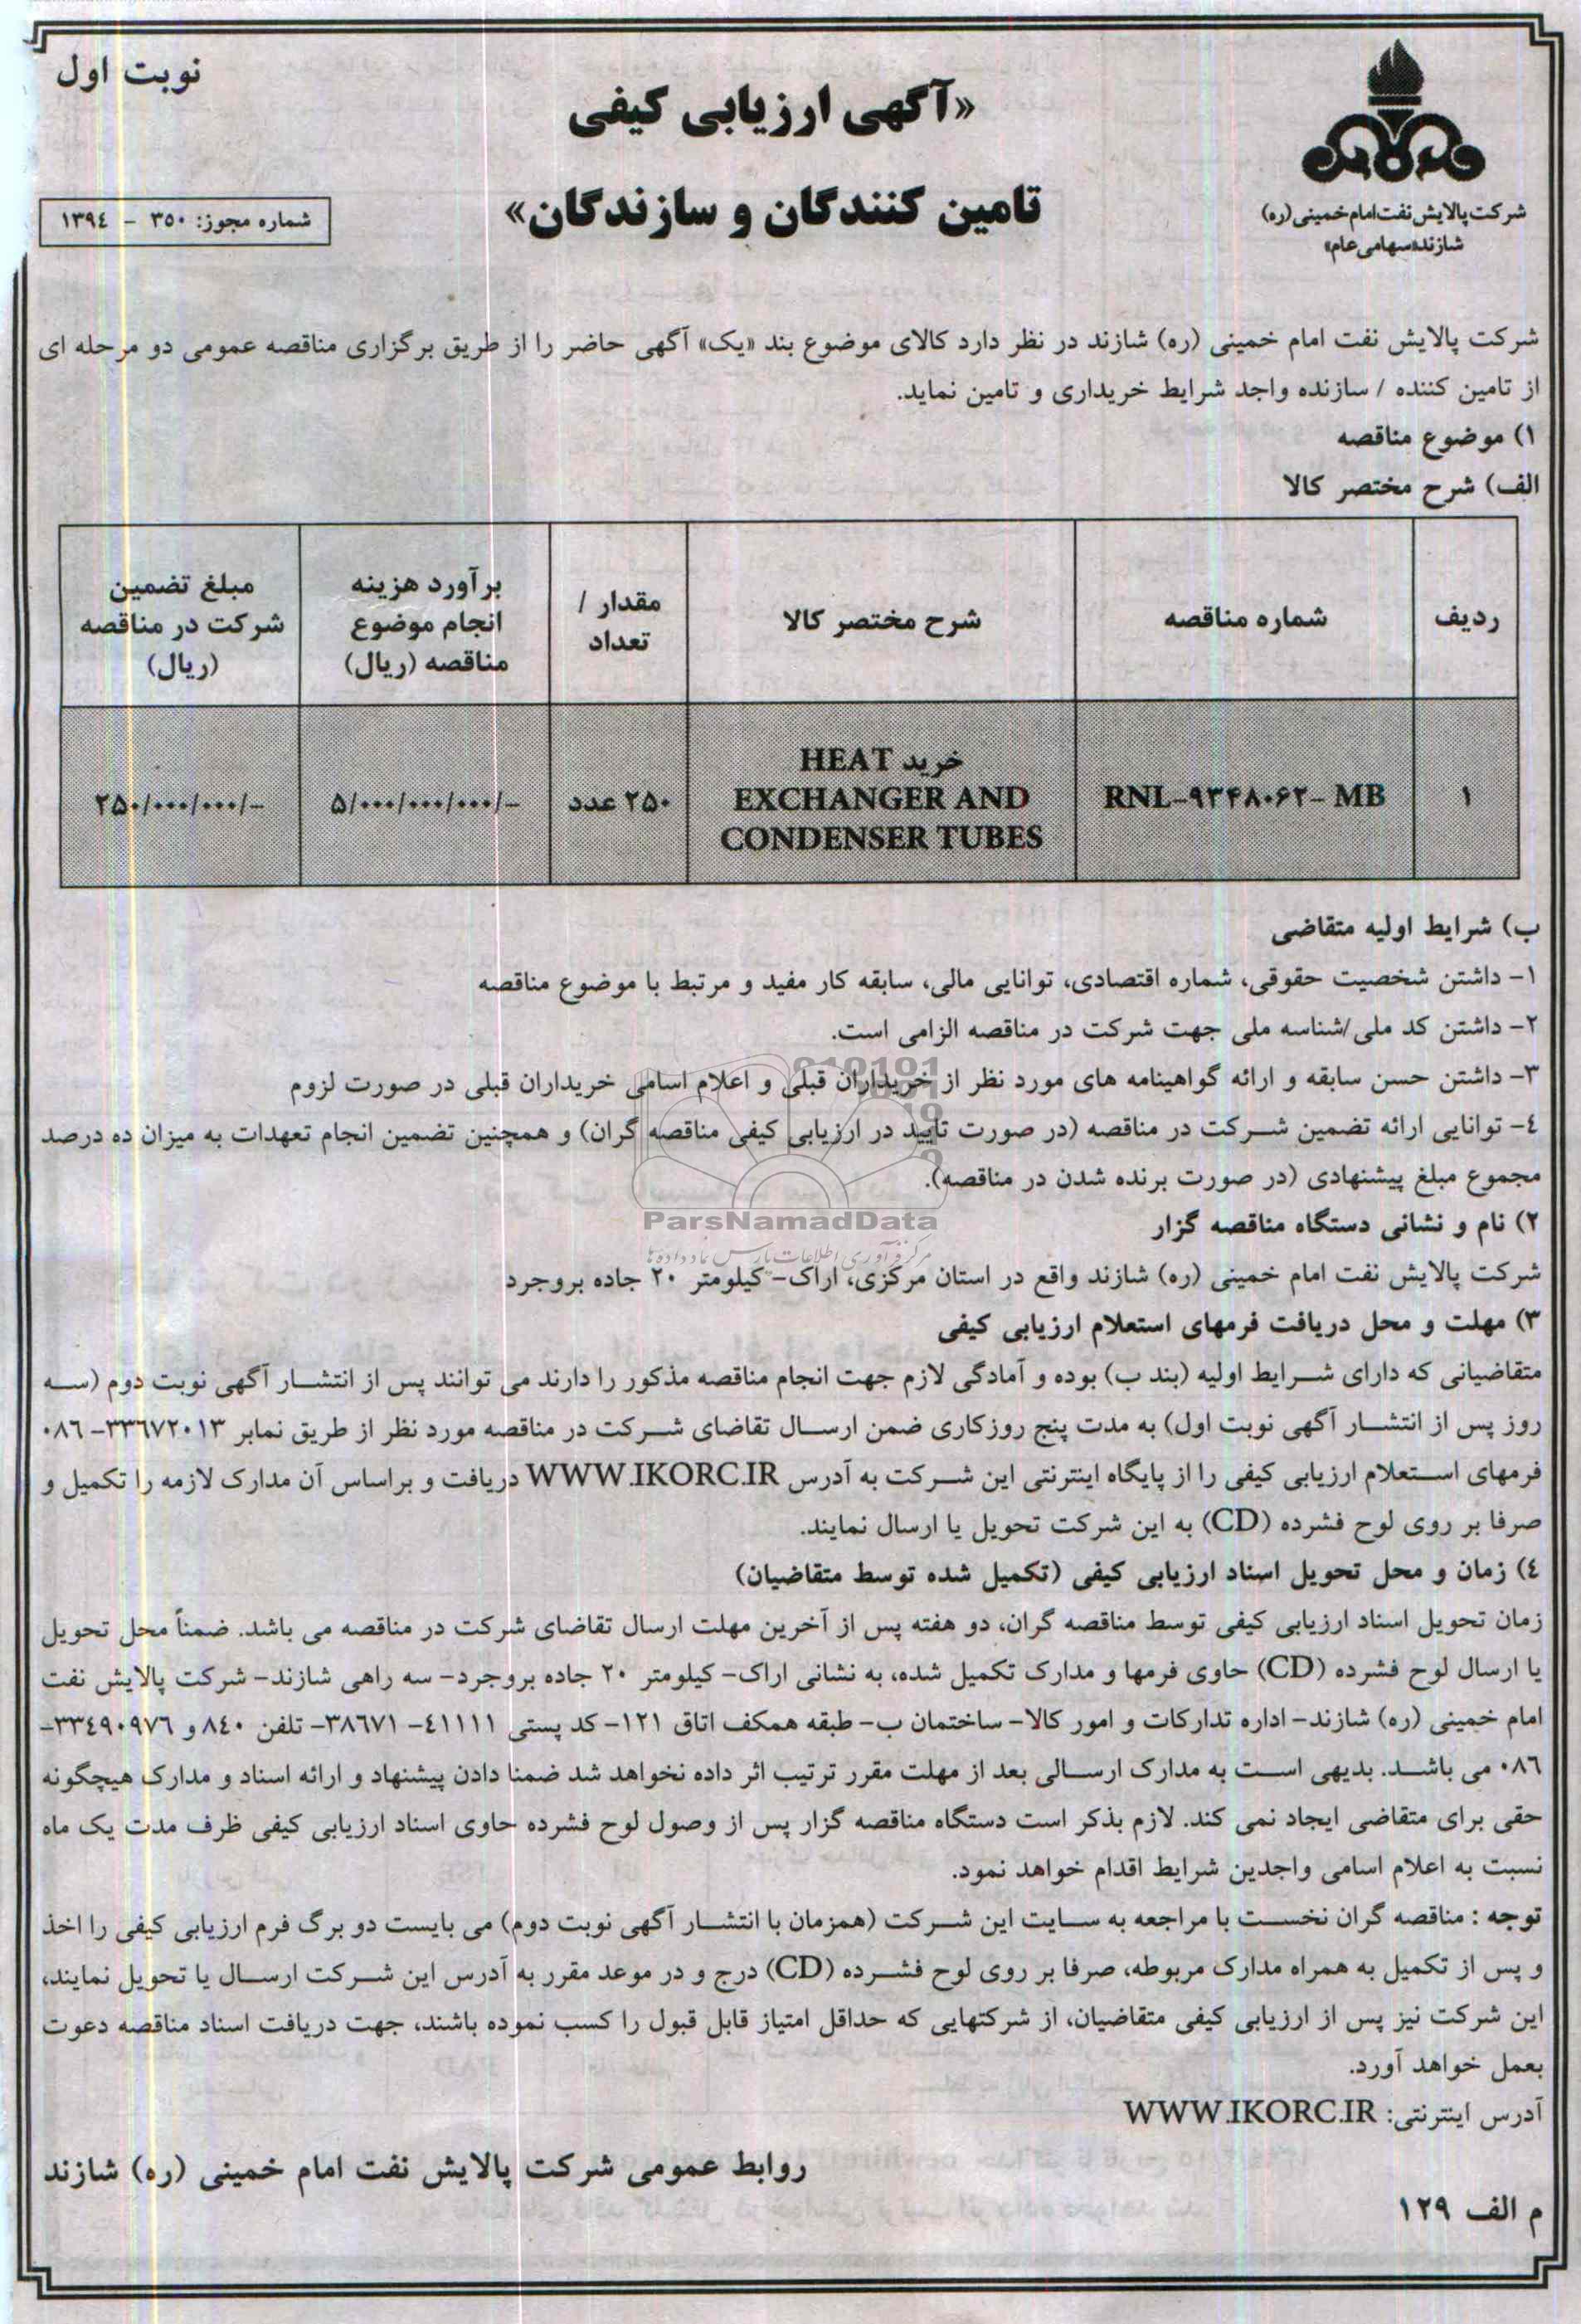 نوبت اول
«آگهی ارزیابی کیفی
تامین کنندگان و سازندگان»
شماره مجوز: ۳۵۰ - ۱۳۹٤
شرکت پالایش نفت امام خمینی (ره)
شازند«سهامی عام»
شرکت پالایش نفت امام خمینی (ره) شازند در نظر دارد کالای موضوع بند «یک» آگهی حاضر را از طریق برگزاری مناقصه عمومی دو مرحله ای
از تامین کننده / سازنده واجد شرایط خریداری و تامین نماید.
۱) موضوع مناقصه
الف) شرح مختصر کالا
ردیف
شماره مناقصه
شرح مختصر کالا
مقدار / تعداد
برآورد هزینه انجام موضوع مناقصه (ریال)
مبلغ تضمین شرکت در مناقصه (ریال)
۱
RNL-۹۳۴۸۰۶۲- MB
خرید HEAT
EXCHANGER AND
CONDENSER TUBES
۲۵۰ عدد
۵/۰۰۰/۰۰۰/۰۰۰/-
۲۵۰/۰۰۰/۰۰۰/-
ب) شرایط اولیه متقاضی
۱- داشتن شخصیت حقوقی، شماره اقتصادی، توانایی مالی، سابقه کار مفید و مرتبط با موضوع مناقصه
۲- داشتن کد ملی/شناسه ملی جهت شرکت در مناقصه الزامی است.
۳- داشتن حسن سابقه و ارائه گواهینامه های مورد نظر از خریداران قبلی و اعلام اسامی خریداران قبلی در صورت لزوم
٤- توانایی ارائه تضمین شرکت در مناقصه (در صورت تایید در ارزیابی کیفی مناقصه گران) و همچنین تضمین انجام تعهدات به میزان ده درصد
مجموع مبلغ پیشنهادی (در صورت برنده شدن در مناقصه).
ParsNamadData
مرکز فرآوری اطلاعات پارس نماد داده‌ها
۲) نام و نشانی دستگاه مناقصه گزار
شرکت پالایش نفت امام خمینی (ره) شازند واقع در استان مرکزی، اراک- کیلومتر ۲۰ جاده بروجرد
۳) مهلت و محل دریافت فرمهای استعلام ارزیابی کیفی
متقاضیانی که دارای شرایط اولیه (بند ب) بوده و آمادگی لازم جهت انجام مناقصه مذکور را دارند می توانند پس از انتشار آگهی نوبت دوم (سه
روز پس از انتشار آگهی نوبت اول) به مدت پنج روزکاری ضمن ارسال تقاضای شرکت در مناقصه مورد نظر از طریق نمابر ۳۳٦۷۲۰۱۳- ۰۸٦
فرمهای استعلام ارزیابی کیفی را از پایگاه اینترنتی این شرکت به آدرس WWW.IKORC.IR دریافت و براساس آن مدارک لازمه را تکمیل و
صرفا بر روی لوح فشرده (CD) به این شرکت تحویل یا ارسال نمایند.
٤) زمان و محل تحویل اسناد ارزیابی کیفی (تکمیل شده توسط متقاضیان)
زمان تحویل اسناد ارزیابی کیفی توسط مناقصه گران، دو هفته پس از آخرین مهلت ارسال تقاضای شرکت در مناقصه می باشد. ضمناً محل تحویل
یا ارسال لوح فشرده (CD) حاوی فرمها و مدارک تکمیل شده، به نشانی اراک- کیلومتر ۲۰ جاده بروجرد- سه راهی شازند- شرکت پالایش نفت
امام خمینی (ره) شازند- اداره تدارکات و امور کالا- ساختمان ب- طبقه همکف اتاق ۱۲۱- کد پستی ٤۱۱۱۱- ۳۸٦۷۱- تلفن ۸٤۰ و ۳۳٤۹۰۹۷٦-
۰۸٦ می باشد. بدیهی است به مدارک ارسالی بعد از مهلت مقرر ترتیب اثر داده نخواهد شد ضمنا دادن پیشنهاد و ارائه اسناد و مدارک هیچگونه
حقی برای متقاضی ایجاد نمی کند. لازم بذکر است دستگاه مناقصه گزار پس از وصول لوح فشرده حاوی اسناد ارزیابی کیفی ظرف مدت یک ماه
نسبت به اعلام اسامی واجدین شرایط اقدام خواهد نمود.
توجه : مناقصه گران نخست با مراجعه به سایت این شرکت (همزمان با انتشار آگهی نوبت دوم) می بایست دو برگ فرم ارزیابی کیفی را اخذ
و پس از تکمیل به همراه مدارک مربوطه، صرفا بر روی لوح فشرده (CD) درج و در موعد مقرر به آدرس این شرکت ارسال یا تحویل نمایند،
این شرکت نیز پس از ارزیابی کیفی متقاضیان، از شرکتهایی که حداقل امتیاز قابل قبول را کسب نموده باشند، جهت دریافت اسناد مناقصه دعوت
بعمل خواهد آورد.
آدرس اینترنتی: WWW.IKORC.IR
روابط عمومی شرکت پالایش نفت امام خمینی (ره) شازند
م الف ۱۲۹